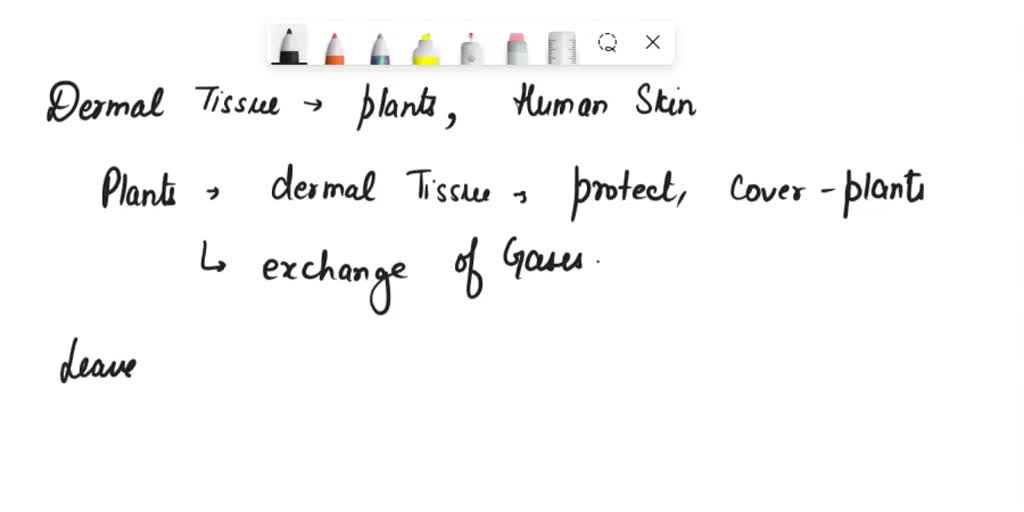 Dermal Tissue → plants, Human Skin
Plants → dermal Tissue → protect, Cover - plants
↳ exchange of Gases.
Leave